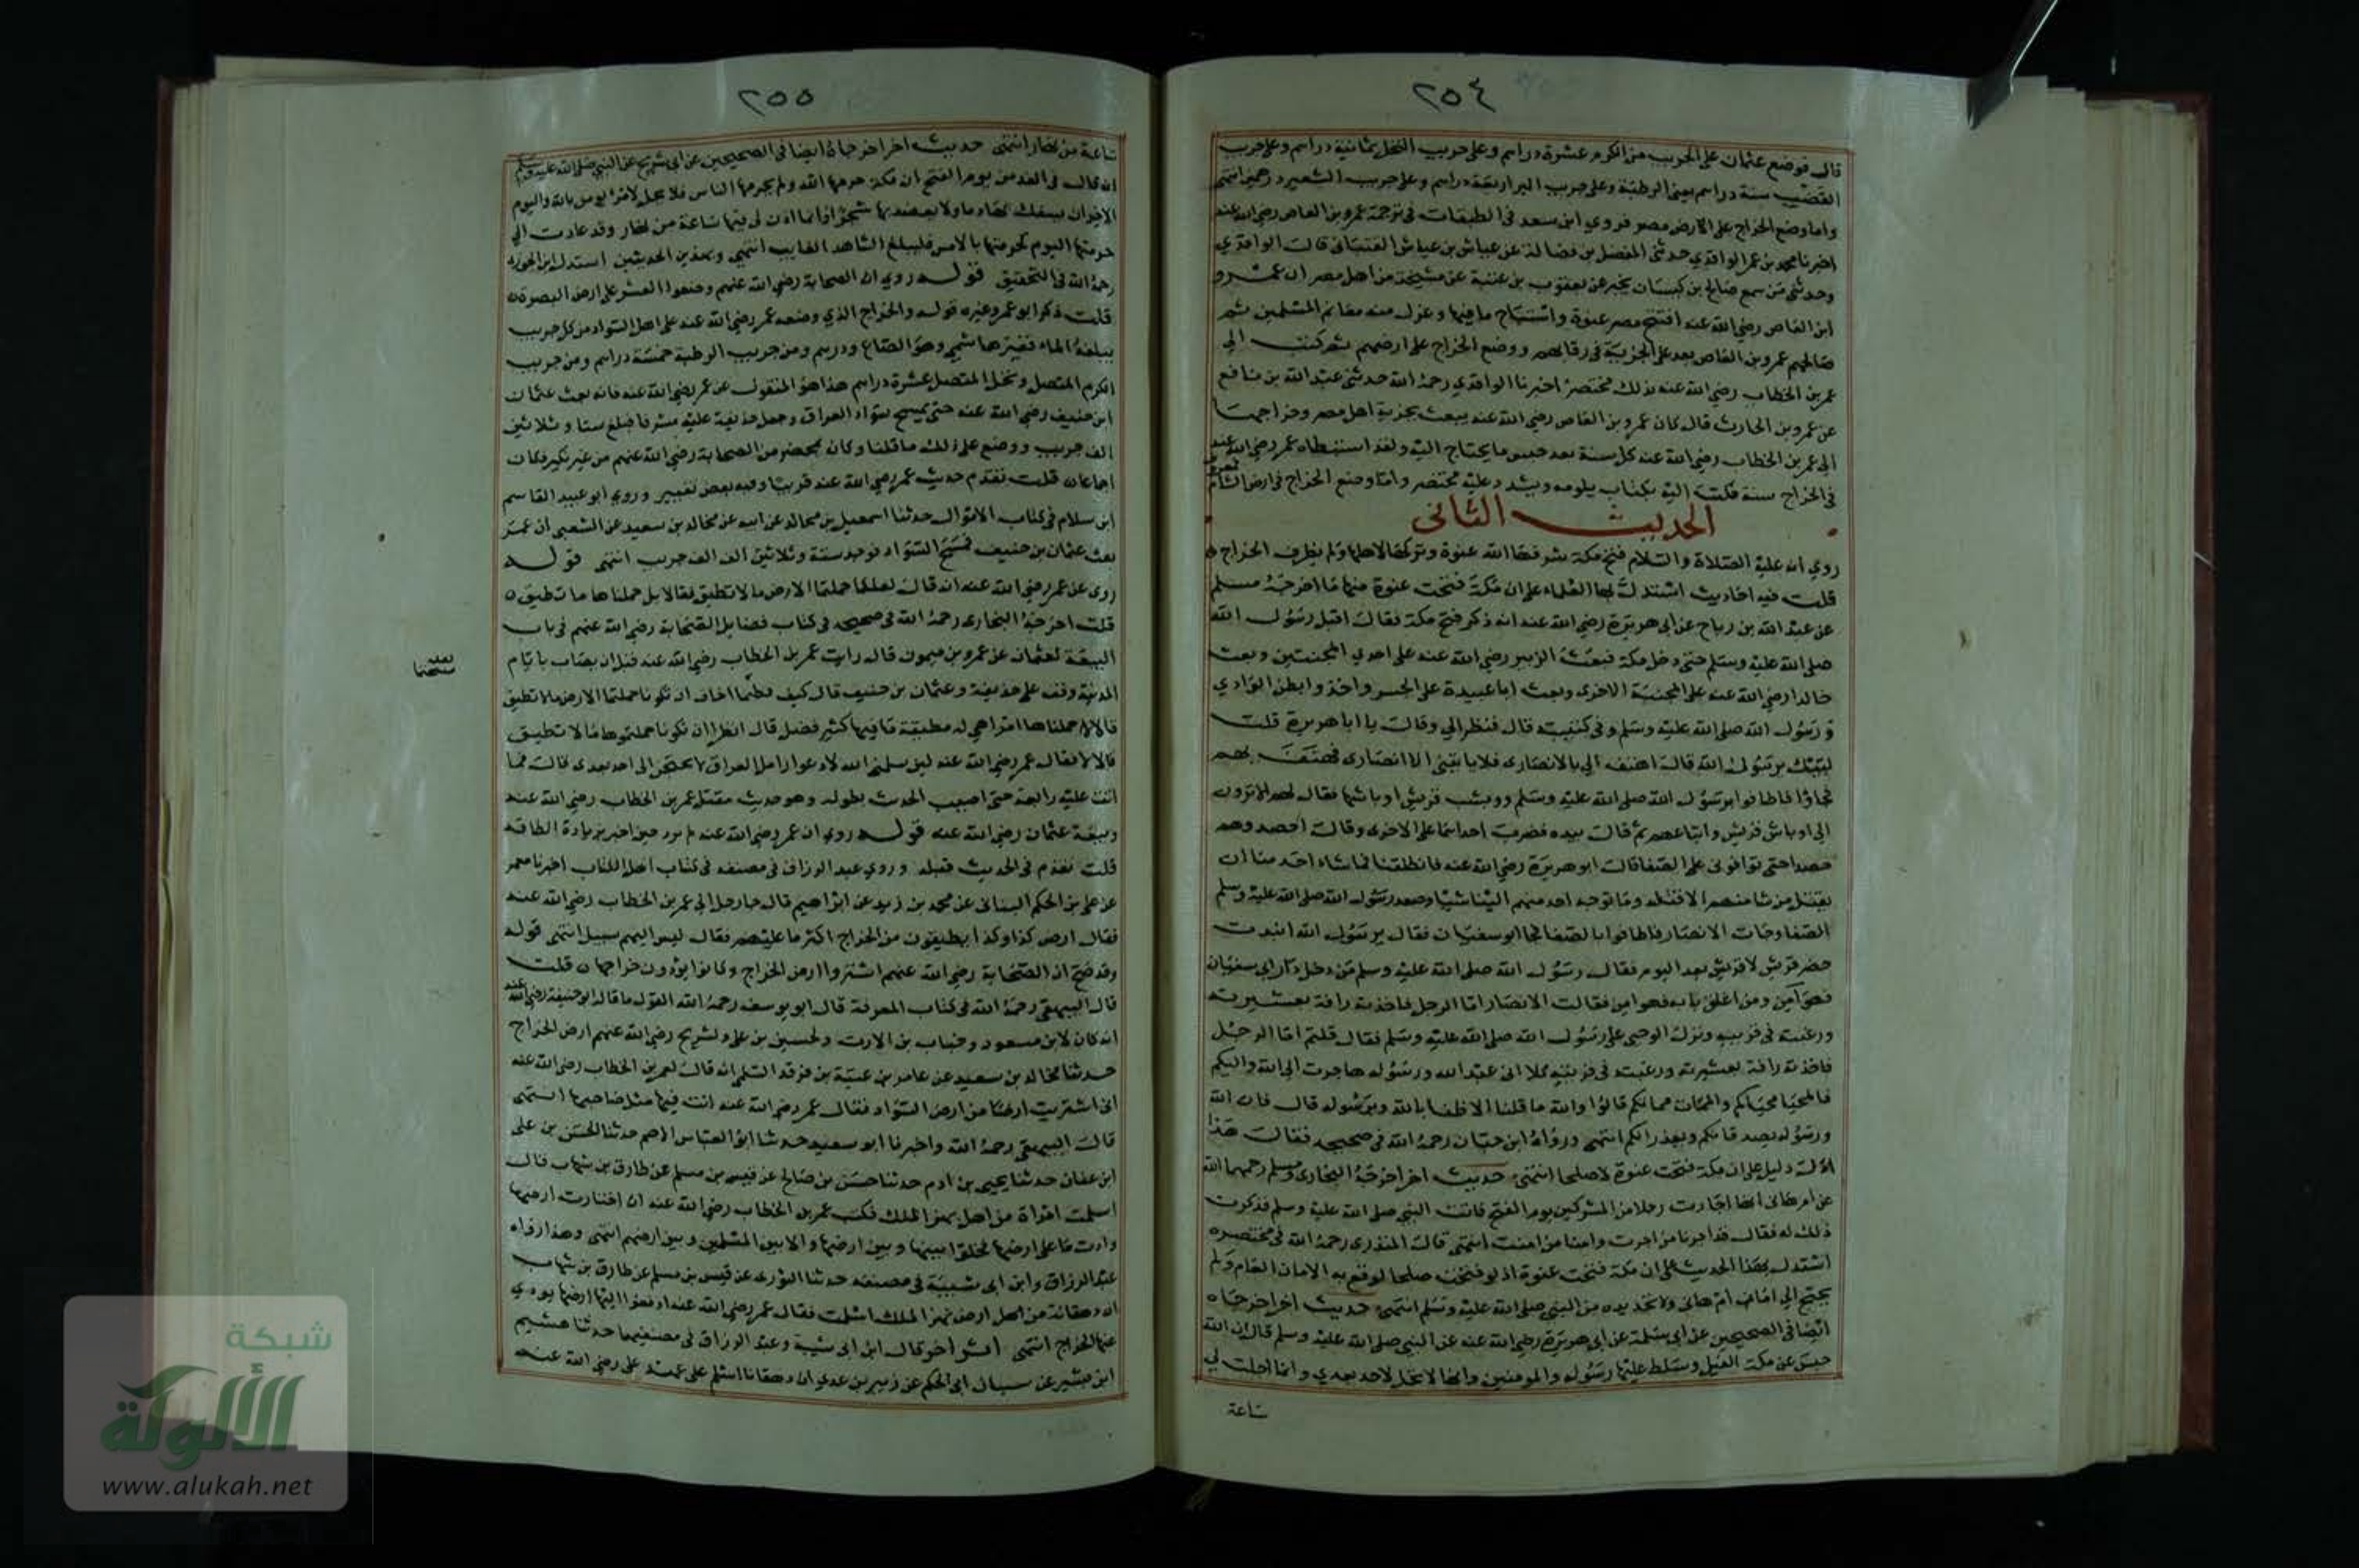 ٢٥٤
قال فوضع عثمان على الجريب من الكرم عشرة دراهم وعلى جريب النخل ثمانية دراهم وعلى جريب
القضب ستة دراهم يعنى الرطبة وعلى جريب البر اربعة دراهم وعلى جريب الشعير درهمين انتهى
واما وضع الخراج على الارض مصر فروي ابن سعد في الطبقات في ترجمة عمرو بن العاص رضي الله عنه
اخبرنا محمد بن عمر الواقدي حدثنى المفضل بن فضالة عن عياش بن عباس القتبانى قال الواقدي
وحدثنى من سمع صالح بن كيسان يخبر عن يعقوب بن عتبة عن مشيخة من اهل مصر ان عمرو
ابن العاص رضي الله عنه افتتح مصر عنوة واستباح ما فيها وعزل منه مغانم المسلمين ثم
صالحهم عمرو بن العاص بعد على الجزية في رقابهم ووضع الخراج على ارضهم ثم كتب الى
عمر بن الخطاب رضي الله عنه بذلك مختصر اخبرنا الواقدي رحمه الله حدثنى عبد الله بن نافع
عن عمرو بن الحارث قال كان عمرو بن العاص رضي الله عنه يبعث بجزية اهل مصر وخراجها
الى عمر بن الخطاب رضي الله عنه كل سنة بعد حبس ما يحتاج اليه ولقد استبطاه عمر رضي الله عنه
في الخراج سنة فكتب اليه بكتاب يلومه ويشدد عليه مختصر واما وضع الخراج في ارض الشام
الحديث الثانى
روي انه عليه الصلاة والسلام فتح مكة شرفها الله عنوة وتركها لاهلها ولم يظرف الخراج
قلت فيه احاديث استدل بها العلماء على ان مكة فتحت عنوة منها ما اخرجه مسلم
عن عبد الله بن رباح عن ابى هريرة رضي الله عنه انه ذكر فتح مكة فقال اقبل رسول الله
صلى الله عليه وسلم حتى دخل مكة فبعث الزبير رضي الله عنه على احدي المجنبتين وبعث
خالدا رضي الله عنه على المجنبة الاخرى وبعث ابا عبيدة على الجسر واخذوا بطن الوادي
ورسول الله صلى الله عليه وسلم في كتيبته قال فنظر الي وقال يا ابا هريرة قلت
لبيك يرسول الله قال اهتف الي بالانصارى فلا ياتينى الا انصارى فهتف بهم
فجاؤا فاطافوا برسول الله صلى الله عليه وسلم ووبشت قريش اوباشها فقال لهم الا ترون
الى اوباش قريش واتباعهم ثم قال بيده فضرب احداهما على الاخرى وقال احصدوهم
حصدا حتى توافونى على الصفا قال ابو هريرة رضي الله عنه فانطلقنا فما شاء احد منا ان
يقتل من شا منهم الا قتله وما توجه احد منهم الينا شيا وصعد رسول الله صلى الله عليه وسلم
الصفا وجات الانصار فاطافوا بالصفا فجا ابو سفيان فقال يرسول الله ابيدت
خضر قريش لا قريش بعد اليوم فقال رسول الله صلى الله عليه وسلم من دخل دار ابى سفيان
فهو آمن ومن اغلق بابه فهو امن فقالت الانصار اما الرجل فاخذته رافة بعشيرته
ورغبة في قريته ونزل الوحى على رسول الله صلى الله عليه وسلم فقال قلتم اما الرجل
فاخذته رافة بعشيرته ورغبة في قريته كلا انى عبد الله ورسوله هاجرت الى الله واليكم
فالمحيا محياكم والممات مماتكم قالوا والله ما قلنا الا ظنا بالله وبرسوله قال فان الله
ورسوله يصدقانكم ويعذرانكم انتهى ورواه ابن حبان رحمه الله في صحيحه فقال هذا
ادل دليل على ان مكة فتحت عنوة لا صلحا انتهى حديث اخر اخرجه البخارى ومسلم رحمهما الله
عن ام هانى انها اجارت رجلا من المشركين يوم الفتح فاتت النبي صلى الله عليه وسلم فذكرت
ذلك له فقال قد اجرنا من اجرت وامنا من امنت انتهى قال المنذرى رحمه الله في مختصره
استدل بهذا الحديث على ان مكة فتحت عنوة اذ لو فتحت صلحا لوقع به الامان العام ولم
يحتج الى امان ام هانى ولا تحديده من النبي صلى الله عليه وسلم انتهى حديث اخر اخرجاه
ايضا في الصحيحين عن ابى سلمة عن ابى هريرة رضي الله عنه عن النبي صلى الله عليه وسلم قال ان الله
حبس عن مكة الفيل وسلط عليها رسوله والمومنين وانها لا تحل لاحد بعدي وانما احلت لي
ساعة
٢٥٥
ساعة من نهار انتهى حديث اخر اخرجاه ايضا في الصحيحين عن ابى شريح عن النبي صلى الله عليه وسلم
انه قال في الغد من يوم الفتح ان مكة حرمها الله ولم يحرمها الناس فلا يحل لامرئ يومن بالله واليوم
الاخر ان يسفك بها دما ولا يعضد بها شجرا وانما اذن لى فيها ساعة من نهار وقد عادت الى
حرمتها اليوم كحرمتها بالامس فليبلغ الشاهد الغايب انتهى وبهذين الحديثين استدل ابن الجوزي
رحمه الله في التحقيق قوله روي ان الصحابة رضي الله عنهم وضعوا العشر على ارض البصرة
قلت ذكر ابو عمر وغيره قوله والخراج الذي وضعه عمر رضي الله عنه على اهل السواد من كل جريب
يبلغه الماء قفيز هاشمي وهو الصاع ودرهم ومن جريب الرطبة خمسة دراهم ومن جريب
الكرم المتصل ونخل المتصل عشرة دراهم هذا هو المنقول عن عمر رضي الله عنه فانه بعث عثمان
ابن حنيف رضي الله عنه حتى يمسح سواد العراق وجعل حذيفة عليه مشرفا فبلغ ستا وثلاثين
الف جريب ووضع على ذلك ما قلنا وكان بمحضر من الصحابة رضي الله عنهم من غير نكير فكان
اجماعا قلت تقدم حديث عمر رضي الله عنه قريبا وفيه بعض تغيير وروي ابو عبيد القاسم
ابن سلام في كتاب الاموال حدثنا اسمعيل بن مجالد عن ابيه عن مجالد بن سعيد عن الشعبي ان عمر
بعث عثمان بن حنيف فمسح السواد فوجد ستة وثلاثين الف الف جريب انتهى قوله
روى عن عمر رضي الله عنه انه قال لعلكما حملتما الارض ما لا تطيق فقالا بل حملناها ما تطيق
قلت اخرجه البخارى رحمه الله في صحيحه في كتاب فضايل الصحابة رضي الله عنهم في باب
البيعة لعثمان عن عمرو بن ميمون قال رايت عمر بن الخطاب رضي الله عنه قبل ان يصاب بايام
المدينة وقف على حذيفة وعثمان بن حنيف قال كيف فعلتما اخاف ان تكونا حملتما الارض ما لا تطيق
قالا حملناها امرا هي له مطيقة ما فيها كثير فضل قال انظرا ان تكونا حملتموها ما لا تطيق
قالا لا فقال عمر رضي الله عنه لين سلمنى الله لادعوا رامل العراق لا يحتجن الى احد بعدى قال فما
اتت عليه رابعة حتى اصيب الحديث بطوله وهو حديث مقتل عمر بن الخطاب رضي الله عنه
وبيعة عثمان رضي الله عنه قوله روي ان عمر رضي الله عنه لم يزد حين اخبر بزيادة الطاقة
قلت تقدم في الحديث قبله وروي عبد الرزاق في مصنفه في كتاب اهل الكتاب اخبرنا معمر
عن على بن الحكم البنانى عن محمد بن زيد عن ابراهيم قال جا رجل الى عمر بن الخطاب رضي الله عنه
فقال ارض كذا وكذا يطيقون من الخراج اكثر ما عليهم فقال ليس اليهم سبيل انتهى قوله
وقد صح ان الصحابة رضي الله عنهم اشتروا ارض الخراج وكانوا يؤدون خراجها قلت
قال البيهقى رحمه الله في كتاب المعرفة قال ابو يوسف رحمه الله القول ما قاله ابو حنيفة رضي الله عنه
انه كان لابن مسعود وخباب بن الارت ولحسين بن على ولشريح رضي الله عنهم ارض الخراج
حدثنا مجالد بن سعيد عن عامر بن عتبة بن فرقد السلمى انه قال لعمر بن الخطاب رضي الله عنه
انى اشتريت ارضا من ارض السواد فقال عمر رضي الله عنه انت فيها مثل صاحبها انتهى
قال البيهقى رحمه الله واخبرنا ابو سعيد حدثنا ابو العباس الاصم حدثنا الحسن بن على
ابن عفان حدثنا يحيى بن ادم حدثنا حسن بن صالح عن قيس بن مسلم عن طارق بن شهاب قال
اسلمت امراة من اهل نهر الملك فكتب عمر بن الخطاب رضي الله عنه ان اختارت ارضها
وادت ما على ارضها فخلوا بينها وبين ارضها والا بين المسلمين وبين ارضهم انتهى وهذا رواه
عبد الرزاق وابن ابى شيبة في مصنفه حدثنا الثورى عن قيس بن مسلم عن طارق بن شهاب
ان دهقانة من اهل ارض نهر الملك اسلمت فقال عمر رضي الله عنه ادفعوا اليها ارضها يودي
عنها الخراج انتهى اثر اخر قال ابن ابى شيبة وعبد الرزاق في مصنفيهما حدثنا هشيم
ابن بشير عن سيار ابى الحكم عن زبير بن عدي ان دهقانا اسلم على عهد على رضي الله عنه
شبكة
الألوكة
www.alukah.net